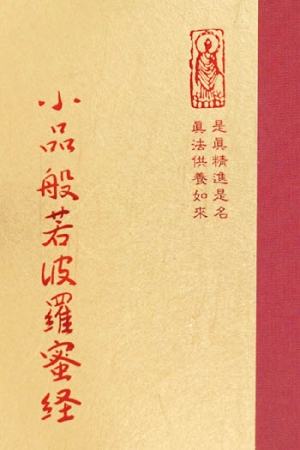 是真精進是名
真法供養如來
小品般若波羅蜜経